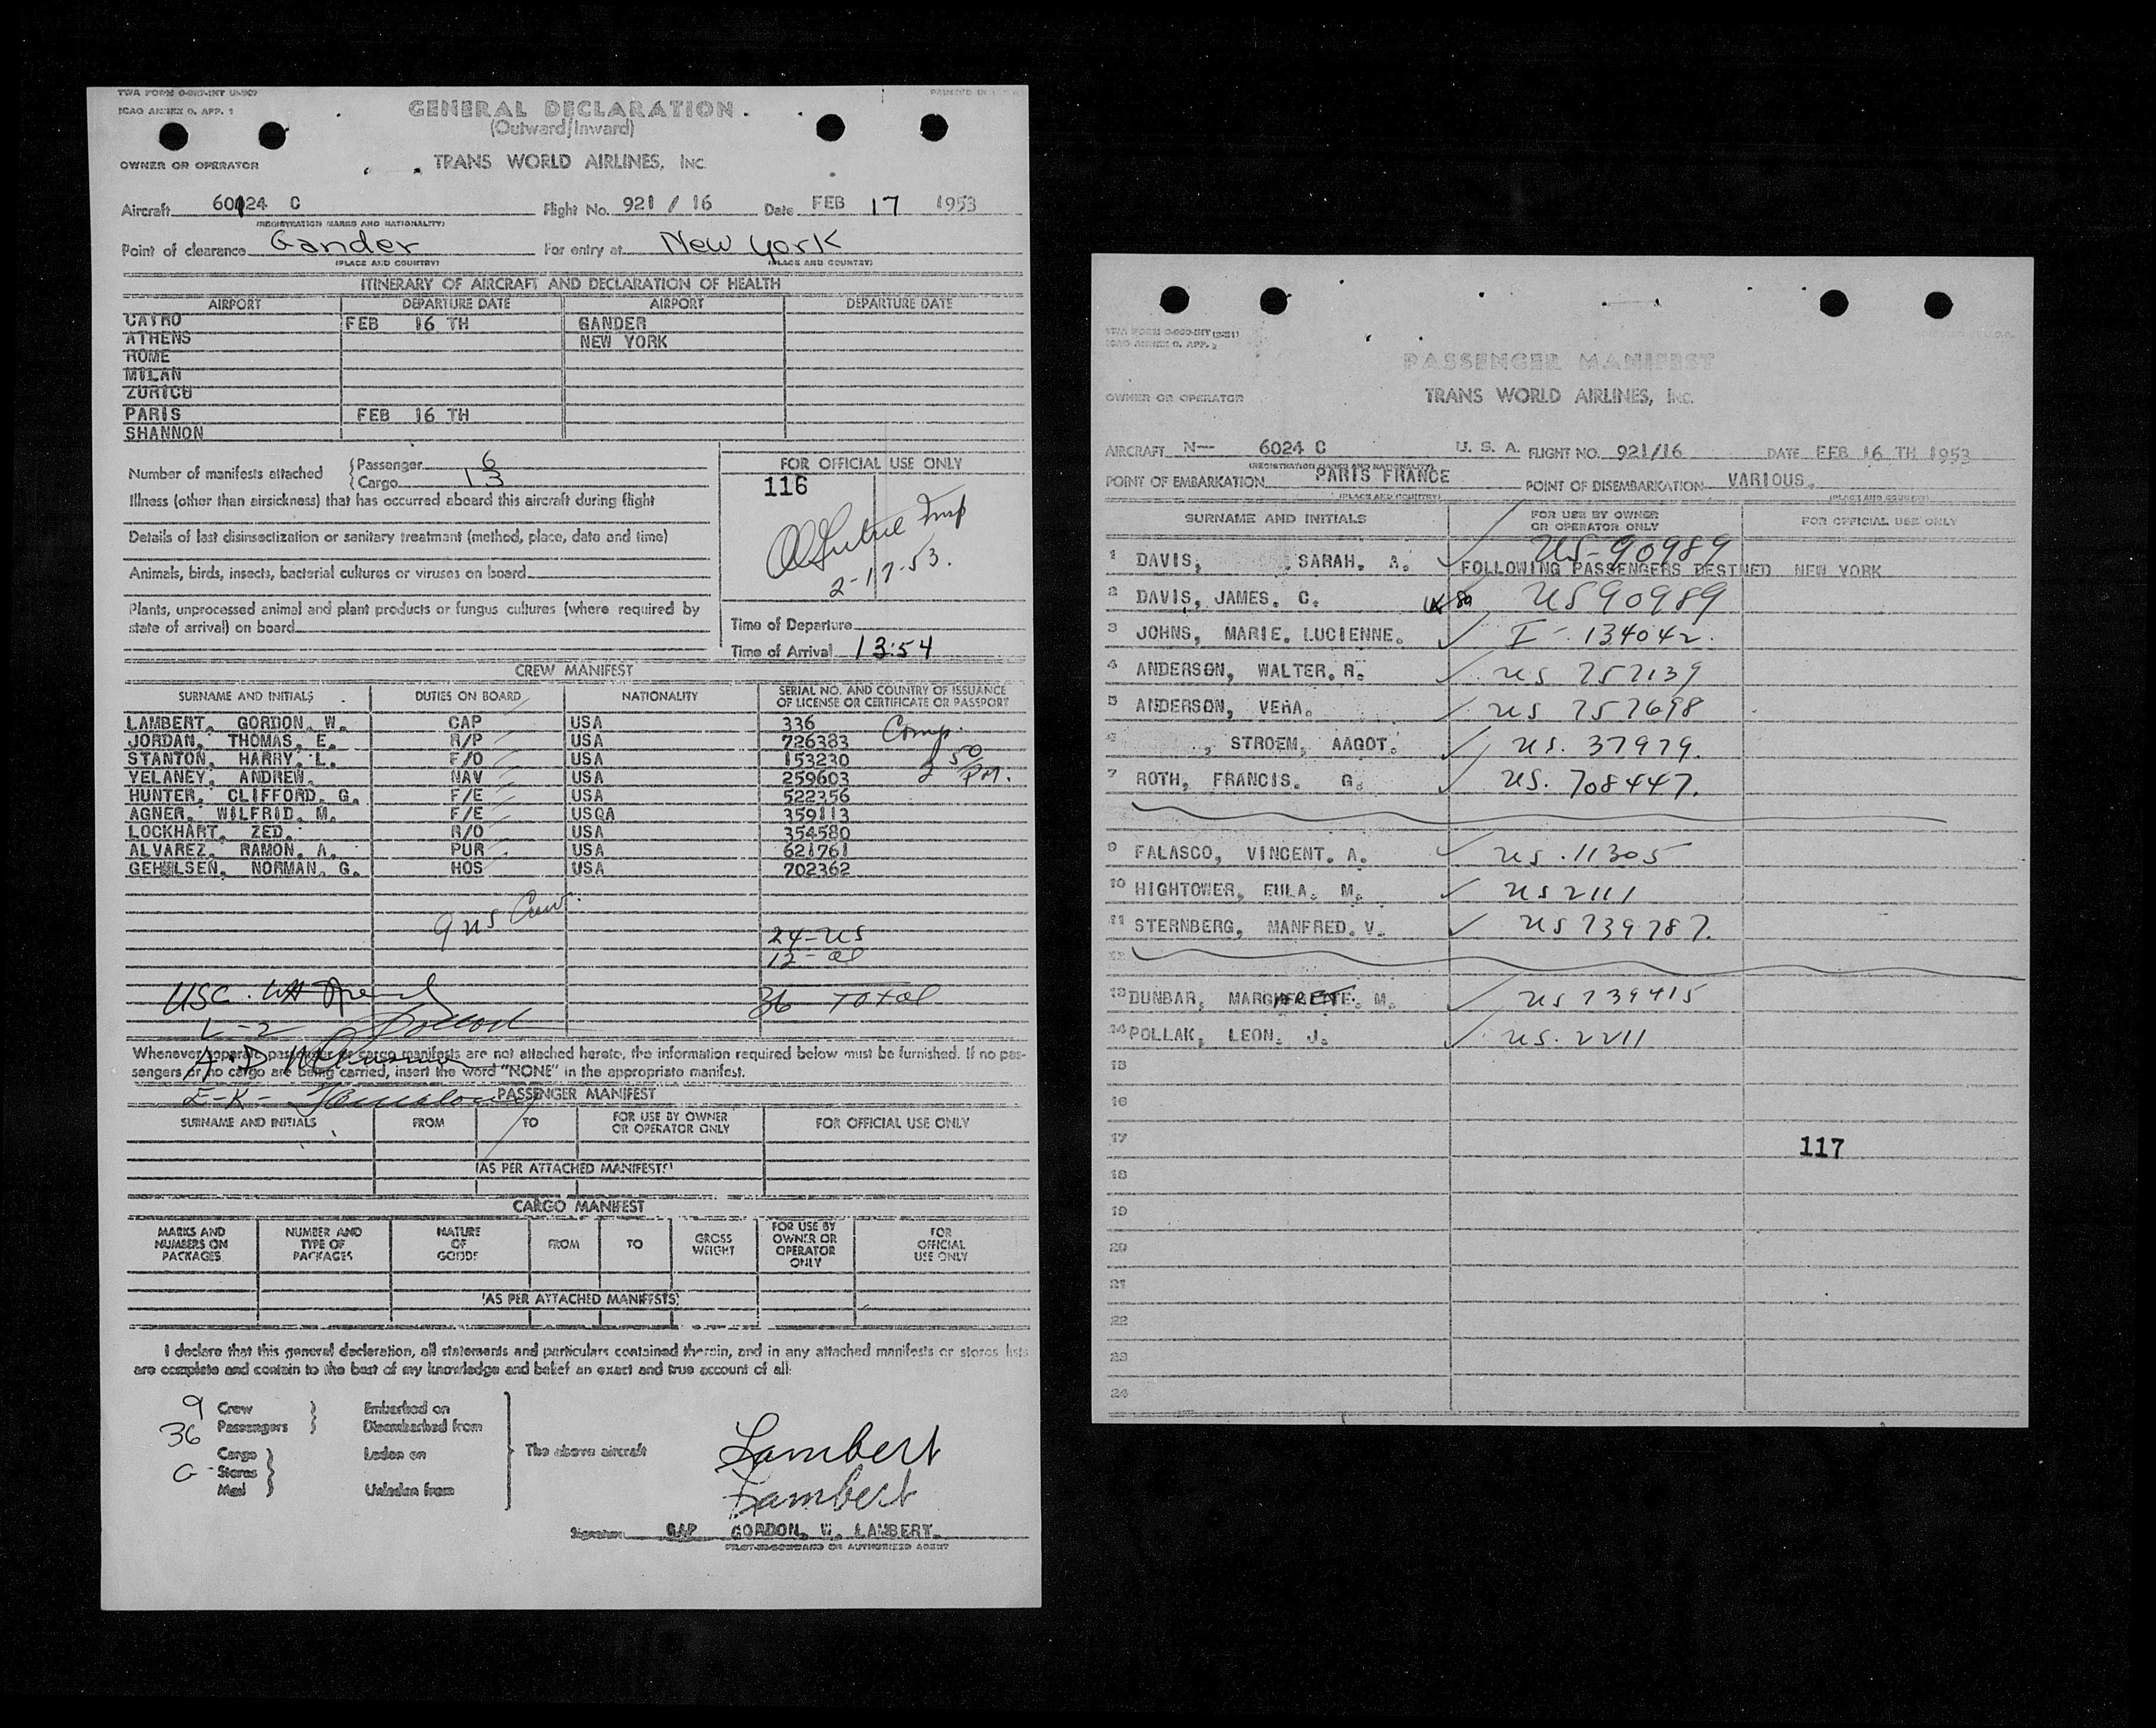 TWA FORM
ICAO ANNEX 9, APP. 1
PRINTED IN
GENERAL DECLARATION
(Outward/Inward)
OWNER OR OPERATOR
TRANS WORLD AIRLINES, INC.
Aircraft 60124 C Flight No. 921 / 16 Date FEB 17 1953
(REGISTRATION MARKS AND NATIONALITY)
Point of clearance Gander For entry at New York
(PLACE AND COUNTRY) (PLACE AND COUNTRY)
ITINERARY OF AIRCRAFT AND DECLARATION OF HEALTH
AIRPORT DEPARTURE DATE AIRPORT DEPARTURE DATE
CAIRO FEB 16 TH GANDER
ATHENS NEW YORK
ROME
MILAN
ZURICH
PARIS FEB 16 TH
SHANNON
Number of manifests attached Passenger 6
Cargo 13
FOR OFFICIAL USE ONLY
116
Illness (other than airsickness) that has occurred aboard this aircraft during flight
Details of last disinsectization or sanitary treatment (method, place, date and time)
Insp
2-17-53.
Animals, birds, insects, bacterial cultures or viruses on board
Plants, unprocessed animal and plant products or fungus cultures (where required by
state of arrival) on board
Time of Departure
Time of Arrival 13:54
CREW MANIFEST
SURNAME AND INITIALS DUTIES ON BOARD NATIONALITY SERIAL NO. AND COUNTRY OF ISSUANCE
OF LICENSE OR CERTIFICATE OR PASSPORT
LAMBERT, GORDON, W. CAP USA 336
JORDAN, THOMAS, E. R/P USA 726383 Comp.
STANTON, HARRY, L. F/O USA 153230
VELANEY, ANDREW. NAV USA 259603 2 50 PM.
HUNTER, CLIFFORD, G. F/E USA 522356
AGNER, WILFRID, M. F/E USQA 359113
LOCKHART, ZED. R/O USA 354580
ALVAREZ, RAMON, A. PUR USA 621761
GEHLSEN, NORMAN, G. HOS USA 702362
9 US Crew.
24-US
12-al
USC.
36 Total
L-2
Whenever separate passenger or cargo manifests are not attached hereto, the information required below must be furnished. If no pas-
sengers or no cargo are being carried, insert the word "NONE" in the appropriate manifest.
E-K-
PASSENGER MANIFEST
SURNAME AND INITIALS FROM TO FOR USE BY OWNER OR OPERATOR ONLY FOR OFFICIAL USE ONLY
(AS PER ATTACHED MANIFESTS)
CARGO MANIFEST
MARKS AND NUMBERS ON PACKAGES NUMBER AND TYPE OF PACKAGES NATURE OF GOODS FROM TO GROSS WEIGHT FOR USE BY OWNER OR OPERATOR ONLY FOR OFFICIAL USE ONLY
(AS PER ATTACHED MANIFESTS)
I declare that this general declaration, all statements and particulars contained therein, and in any attached manifests or stores lists
are complete and contain to the best of my knowledge and belief an exact and true account of all:
9 Crew Embarked on
36 Passengers Disembarked from
Cargo Laden on The above aircraft
Stores
Mail Unladen from
Lambert
Lambert
Signature CAP GORDON, W. LAMBERT.
PILOT-IN-COMMAND OR AUTHORIZED AGENT
TWA FORM
ICAO ANNEX 9, APP. 2
PASSENGER MANIFEST
OWNER OR OPERATOR
TRANS WORLD AIRLINES, INC.
AIRCRAFT N-- 6024 C U. S. A. FLIGHT NO. 921/16 DATE FEB 16 TH 1953
(REGISTRATION MARKS AND NATIONALITY)
POINT OF EMBARKATION PARIS FRANCE POINT OF DISEMBARKATION VARIOUS.
(PLACE AND COUNTRY) (PLACE AND COUNTRY)
SURNAME AND INITIALS FOR USE BY OWNER OR OPERATOR ONLY FOR OFFICIAL USE ONLY
1 DAVIS, SARAH, A. US-90989
FOLLOWING PASSENGERS DESTNED NEW YORK
2 DAVIS, JAMES. C. US90989
3 JOHNS, MARIE. LUCIENNE. I-134042.
4 ANDERSON, WALTER. R. US 757139
5 ANDERSON, VERA. US 757698
6 , STROEM, AAGOT. US. 37979.
7 ROTH, FRANCIS. G. US. 708447.
9 FALASCO, VINCENT. A. US.11305
10 HIGHTOWER, EULA. M. US 2111
11 STERNBERG, MANFRED. V. US 739787.
12
13 DUNBAR, M. US 739415
14 POLLAK, LEON. J. US. 2211
15
16
17 117
18
19
20
21
22
23
24